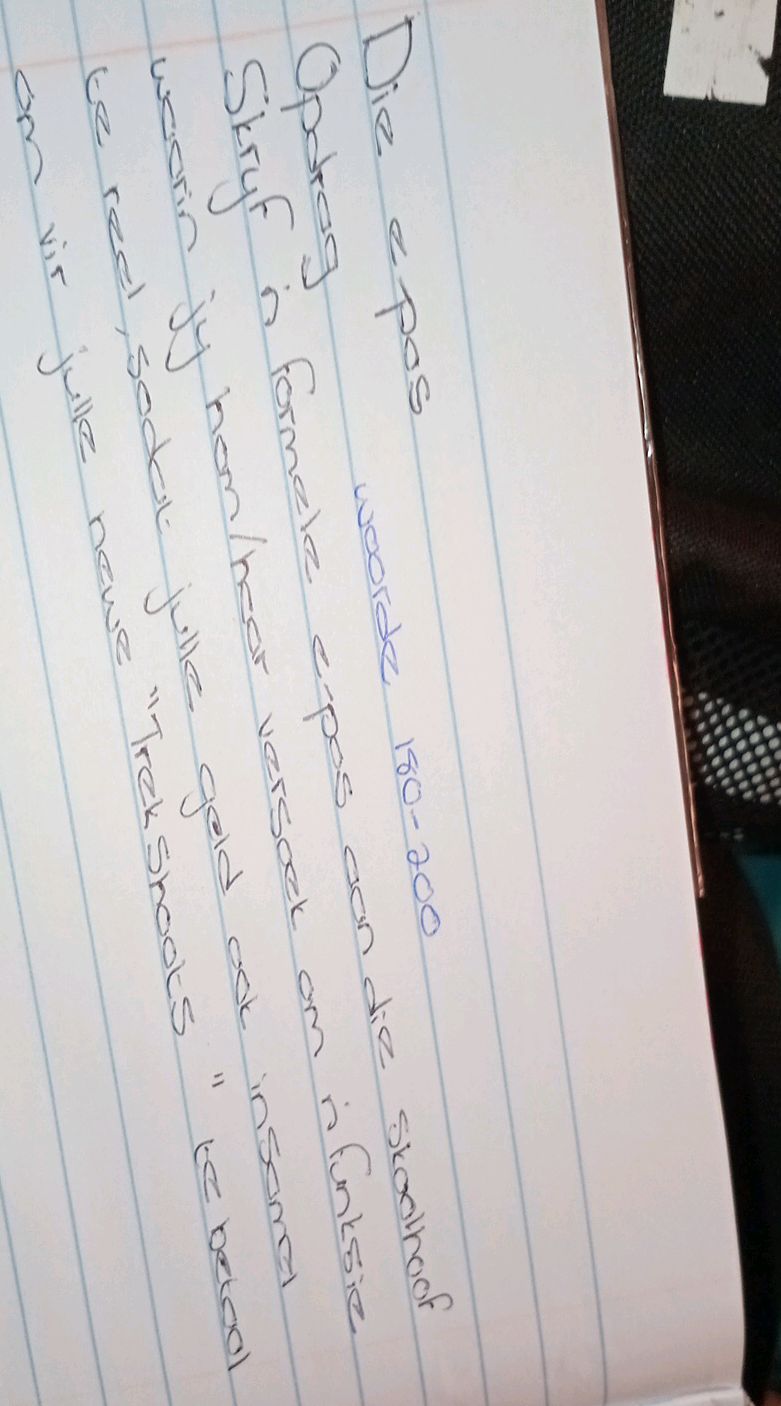 Die e-pos
Opdrag woorde 180-200
Skryf 'n formele e-pos aan die skoolhoof
waarin jy hom/haar versoek om 'n funksie
te reël, sodat julle geld kak insamel
om vir julle nuwe "Trek Shoots" te betaal